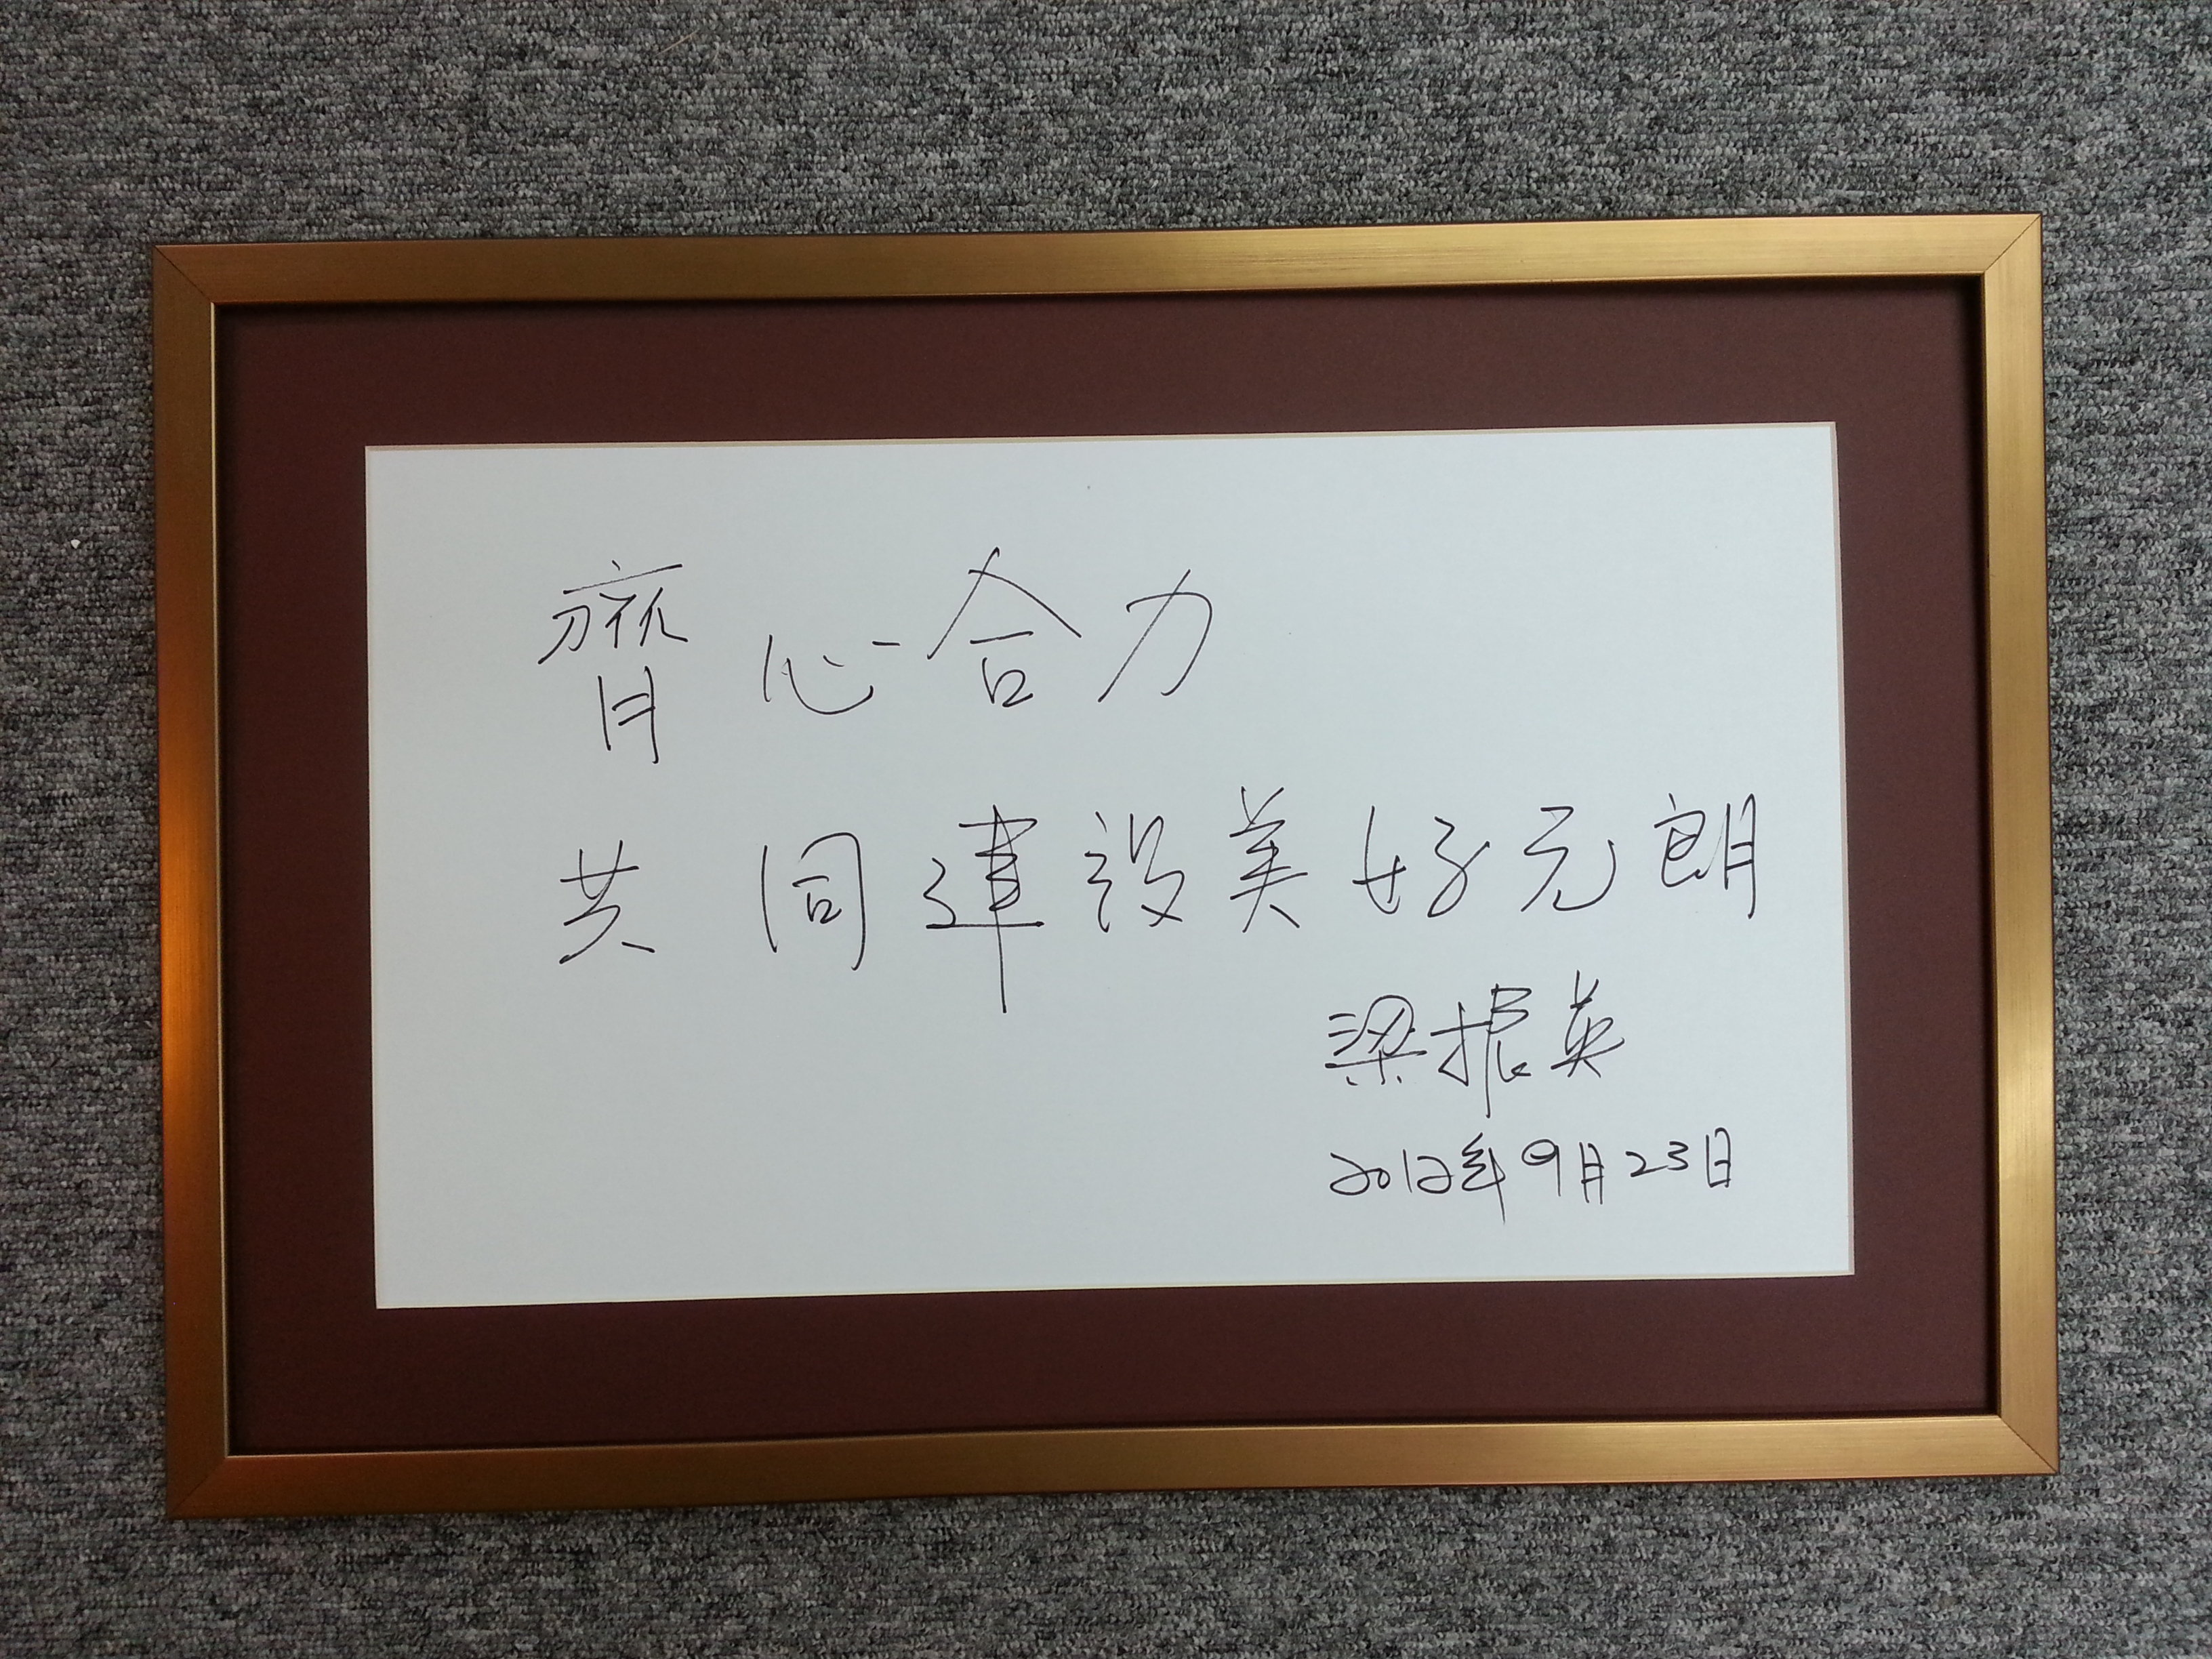 齊心合力
共同建設美好元朗
梁振英
2012年9月23日